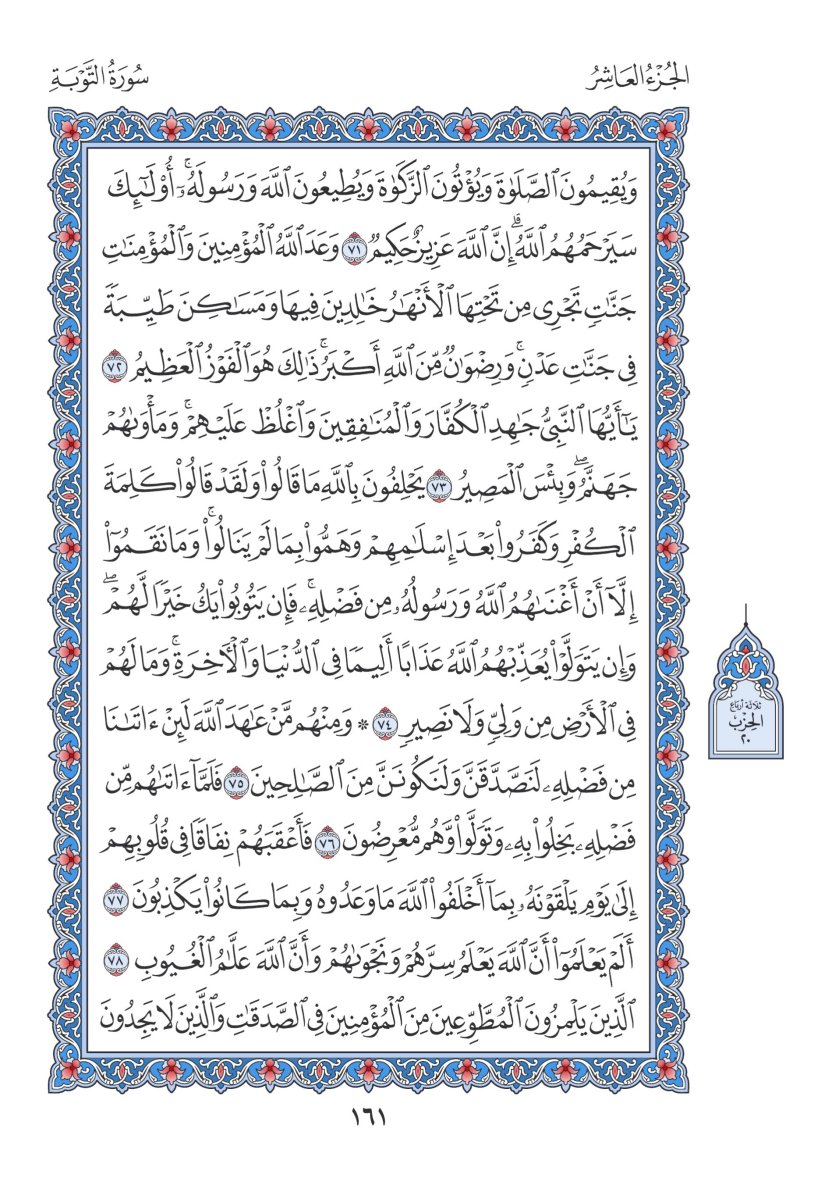 الجُزْءُ العَاشِرُ
سُورَةُ التَّوْبَةِ
وَيُقِيمُونَ ٱلصَّلَوٰةَ وَيُؤْتُونَ ٱلزَّكَوٰةَ وَيُطِيعُونَ ٱللَّهَ وَرَسُولَهُۥٓۚ أُوْلَـٰٓئِكَ
سَيَرْحَمُهُمُ ٱللَّهُۗ إِنَّ ٱللَّهَ عَزِيزٌ حَكِيمٌ ٧١ وَعَدَ ٱللَّهُ ٱلْمُؤْمِنِينَ وَٱلْمُؤْمِنَـٰتِ
جَنَّـٰتٍ تَجْرِى مِن تَحْتِهَا ٱلْأَنْهَـٰرُ خَـٰلِدِينَ فِيهَا وَمَسَـٰكِنَ طَيِّبَةً
فِى جَنَّـٰتِ عَدْنٍۚ وَرِضْوَٰنٌ مِّنَ ٱللَّهِ أَكْبَرُۚ ذَٰلِكَ هُوَ ٱلْفَوْزُ ٱلْعَظِيمُ ٧٢
يَـٰٓأَيُّهَا ٱلنَّبِىُّ جَـٰهِدِ ٱلْكُفَّارَ وَٱلْمُنَـٰفِقِينَ وَٱغْلُظْ عَلَيْهِمْۚ وَمَأْوَىٰهُمْ
جَهَنَّمُۖ وَبِئْسَ ٱلْمَصِيرُ ٧٣ يَحْلِفُونَ بِٱللَّهِ مَا قَالُوا۟ وَلَقَدْ قَالُوا۟ كَلِمَةَ
ٱلْكُفْرِ وَكَفَرُوا۟ بَعْدَ إِسْلَـٰمِهِمْ وَهَمُّوا۟ بِمَا لَمْ يَنَالُوا۟ۚ وَمَا نَقَمُوٓا۟
إِلَّآ أَنْ أَغْنَىٰهُمُ ٱللَّهُ وَرَسُولُهُۥ مِن فَضْلِهِۦۚ فَإِن يَتُوبُوا۟ يَكُ خَيْرًا لَّهُمْۖ
وَإِن يَتَوَلَّوْا۟ يُعَذِّبْهُمُ ٱللَّهُ عَذَابًا أَلِيمًا فِى ٱلدُّنْيَا وَٱلْـَٔاخِرَةِۚ وَمَا لَهُمْ
فِى ٱلْأَرْضِ مِن وَلِىٍّ وَلَا نَصِيرٍ ٧٤ * وَمِنْهُم مَّنْ عَـٰهَدَ ٱللَّهَ لَئِنْ ءَاتَىٰنَا
مِن فَضْلِهِۦ لَنَصَّدَّقَنَّ وَلَنَكُونَنَّ مِنَ ٱلصَّـٰلِحِينَ ٧٥ فَلَمَّآ ءَاتَىٰهُم مِّن
فَضْلِهِۦ بَخِلُوا۟ بِهِۦ وَتَوَلَّوا۟ وَّهُم مُّعْرِضُونَ ٧٦ فَأَعْقَبَهُمْ نِفَاقًا فِى قُلُوبِهِمْ
إِلَىٰ يَوْمِ يَلْقَوْنَهُۥ بِمَآ أَخْلَفُوا۟ ٱللَّهَ مَا وَعَدُوهُ وَبِمَا كَانُوا۟ يَكْذِبُونَ ٧٧
أَلَمْ يَعْلَمُوٓا۟ أَنَّ ٱللَّهَ يَعْلَمُ سِرَّهُمْ وَنَجْوَىٰهُمْ وَأَنَّ ٱللَّهَ عَلَّـٰمُ ٱلْغُيُوبِ ٧٨
ٱلَّذِينَ يَلْمِزُونَ ٱلْمُطَّوِّعِينَ مِنَ ٱلْمُؤْمِنِينَ فِى ٱلصَّدَقَـٰتِ وَٱلَّذِينَ لَا يَجِدُونَ
ثلاثة أرباع
الحِزب
٢٠
١٦١